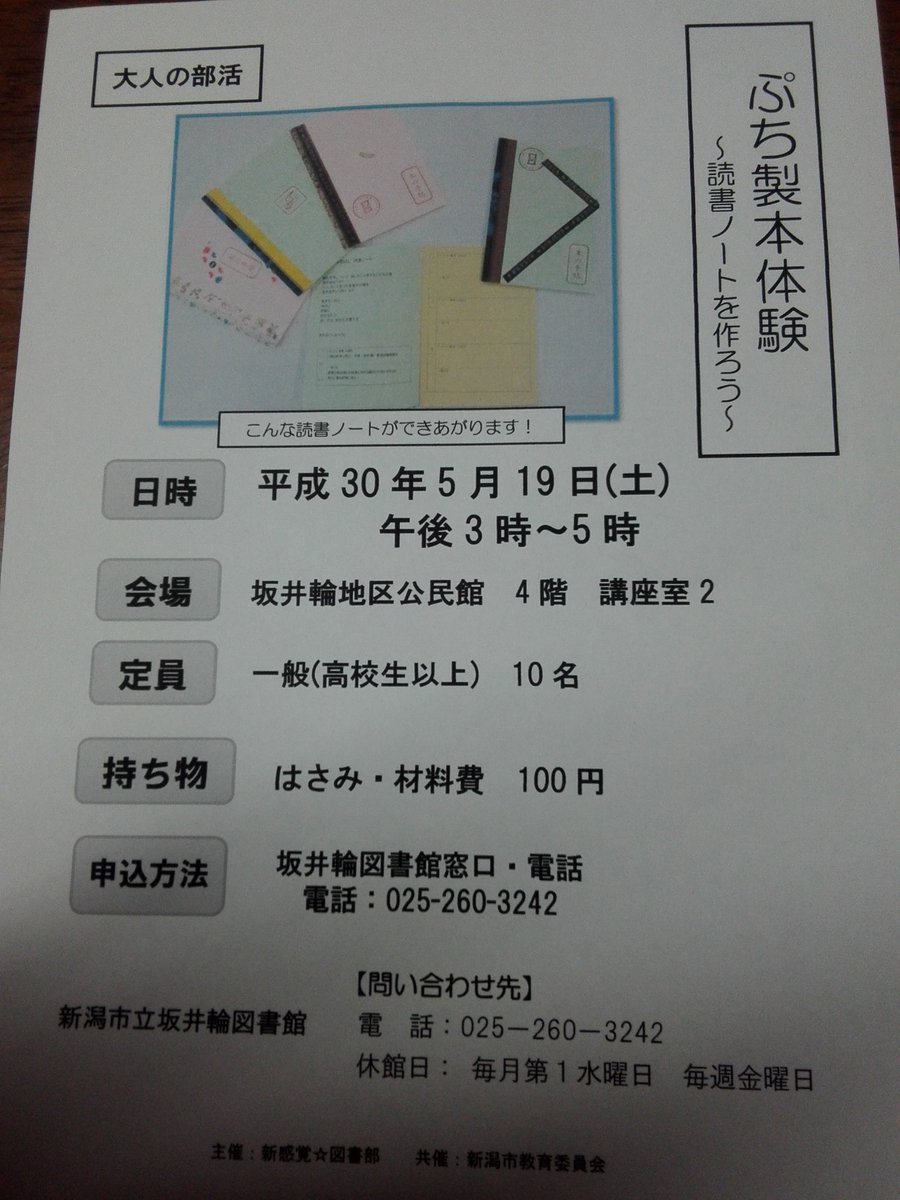 大人の部活
ぷち製本体験
～読書ノートを作ろう～
こんな読書ノートができあがります！
日時 平成30年5月19日(土)
午後3時～5時
会場 坂井輪地区公民館 4階 講座室2
定員 一般(高校生以上) 10名
持ち物 はさみ・材料費 100円
申込方法 坂井輪図書館窓口・電話
電話：025-260-3242
【問い合わせ先】
新潟市立坂井輪図書館
電 話：025－260－3242
休館日： 毎月第1水曜日 毎週金曜日
主催：新感覚☆図書部 共催：新潟市教育委員会